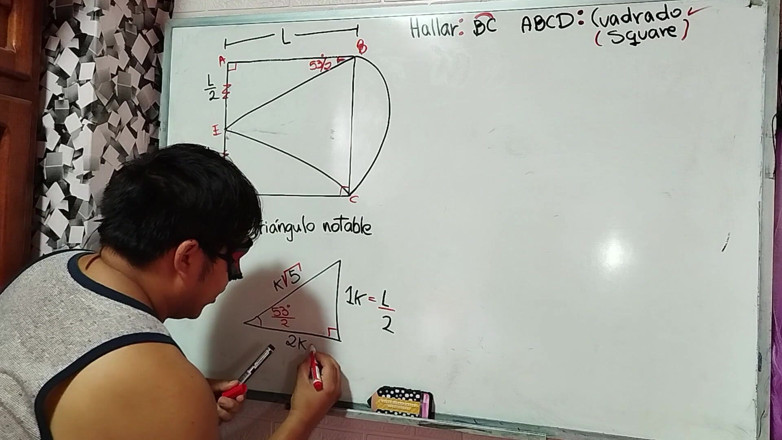 Hallar: BC ABCD: Cuadrado
(Square)
L
A
B
53°/2
L/2
E
C
triángulo notable
k√5
53°/2
1k = L/2
2k